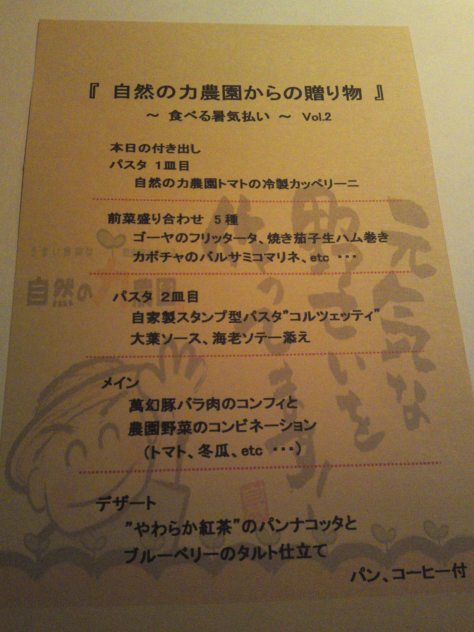 『 自然の力農園からの贈り物 』
～ 食べる暑気払い ～ Vol.2
本日の付き出し
パスタ 1皿目
自然の力農園トマトの冷製カッペリーニ
前菜盛り合わせ 5種
ゴーヤのフリッタータ、焼き茄子生ハム巻き
カボチャのバルサミコマリネ、etc ・・・
パスタ 2皿目
自家製スタンプ型パスタ"コルツェッティ"
大葉ソース、海老ソテー添え
メイン
萬幻豚バラ肉のコンフィと
農園野菜のコンビネーション
(トマト、冬瓜、etc ・・・)
デザート
"やわらか紅茶"のパンナコッタと
ブルーベリーのタルト仕立て
パン、コーヒー付
自然の力農園
元気な
野さいを
作ってます!